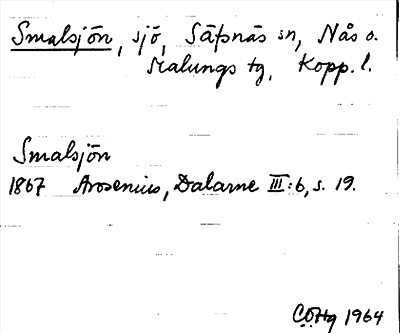 Smalsjön, sjö, Säfsnäs sn, Nås o.
Malungs tg, Kopp. l.
Smalsjön
1867 Arosenius, Dalarne III:6, s. 19.
CÖHg 1964